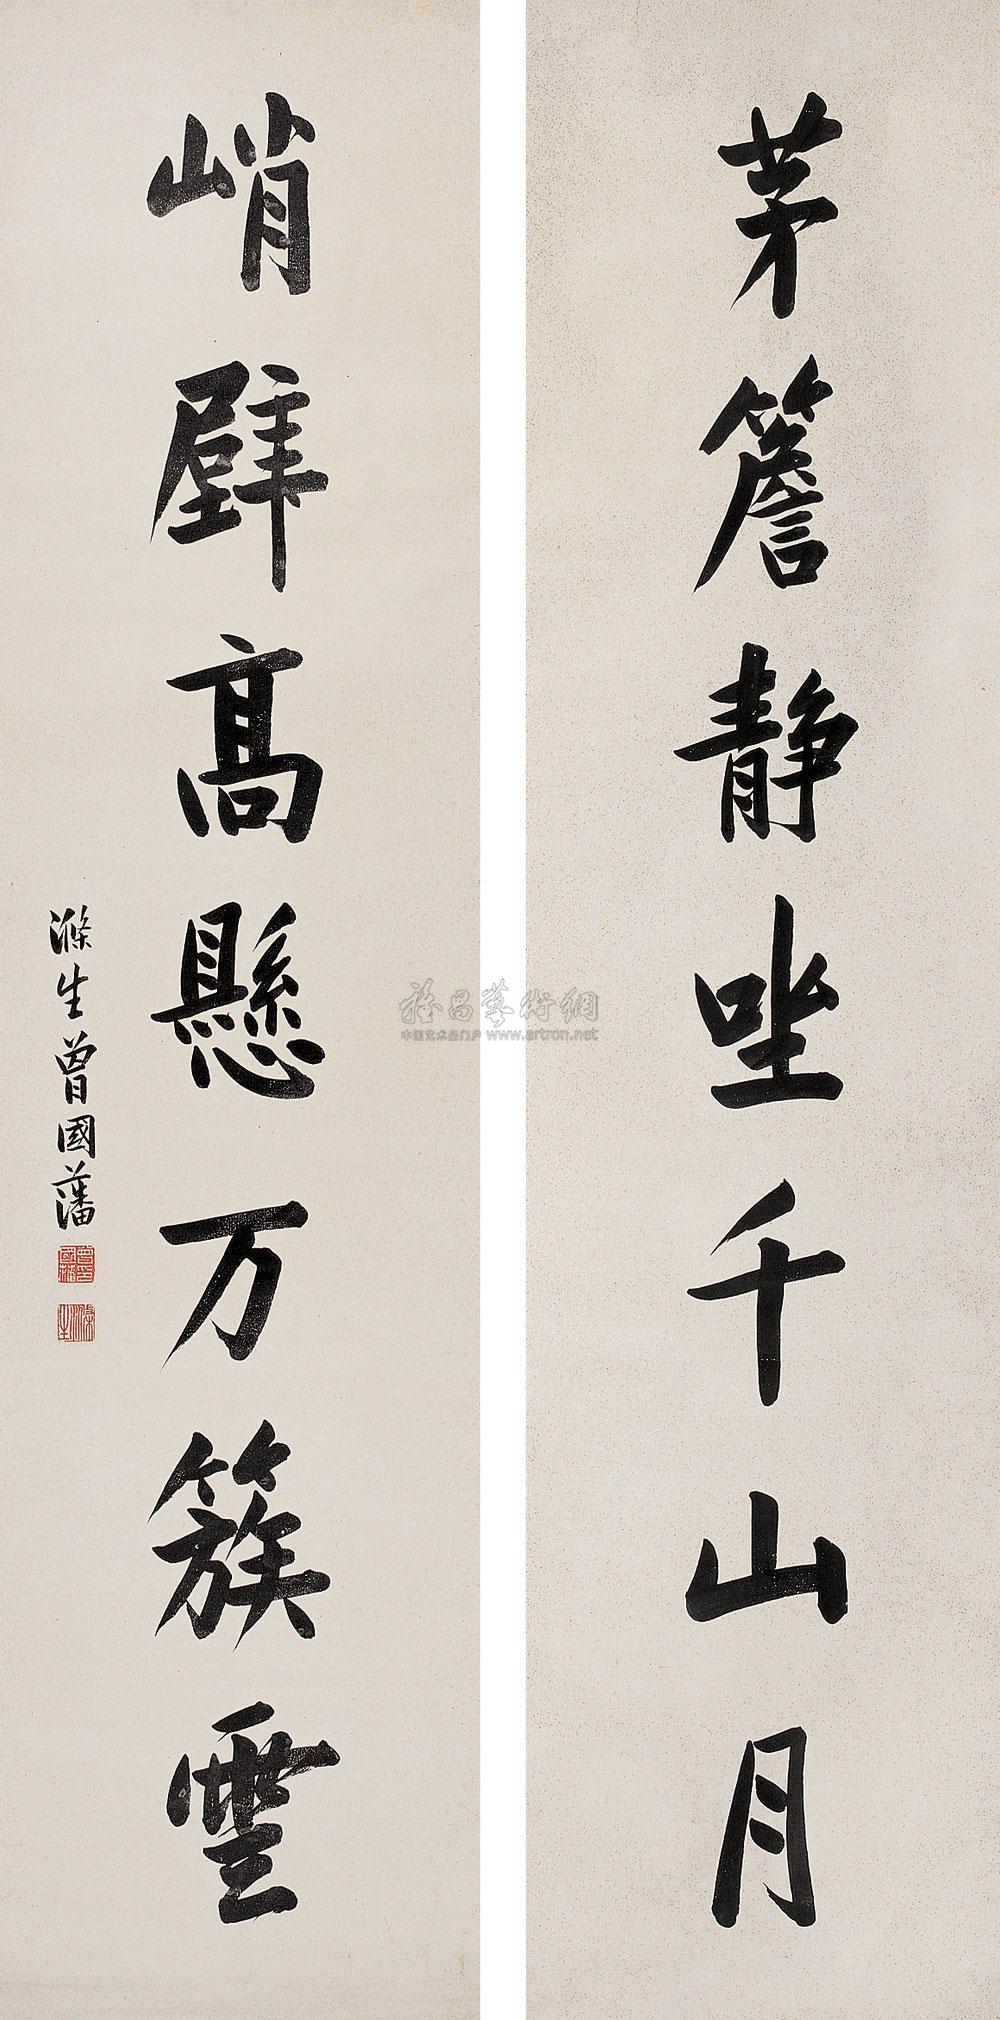 茅簷靜坐千山月
峭壁高懸万簇雲
滌生曾國藩
雅昌藝術網
中国艺术品门户 www.artron.net